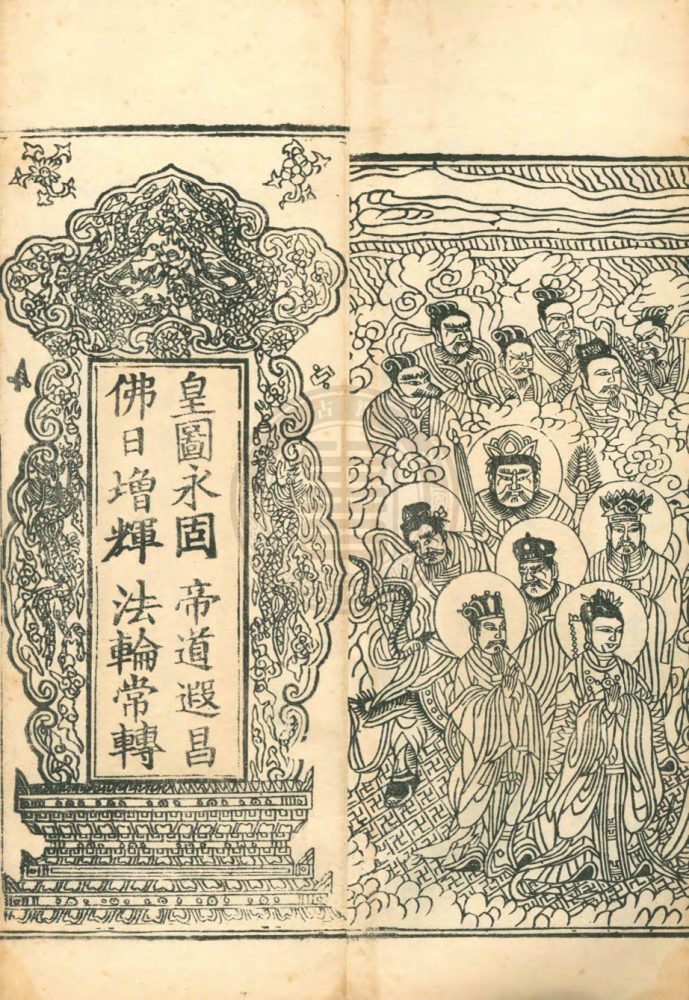 皇圖永固 帝道遐昌
佛日增輝 法輪常轉